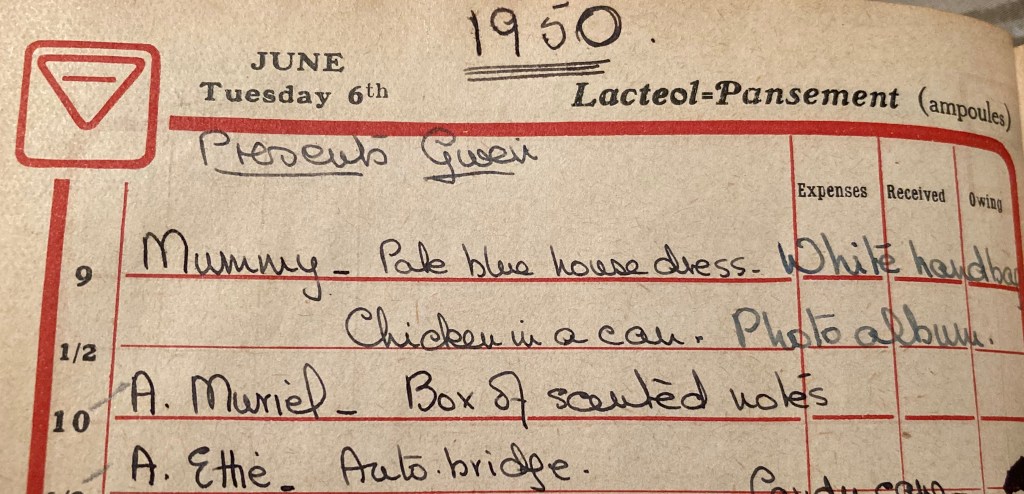 1950.
JUNE
Tuesday 6th
Lacteol=Pansement (ampoules)
Presents Given
Expenses Received Owing
9 Mummy - Pale blue house dress - White handbag
1/2 Chicken in a can. Photo album.
10 A. Muriel - Box of scented notes
A. Ethè - Auto.bridge.